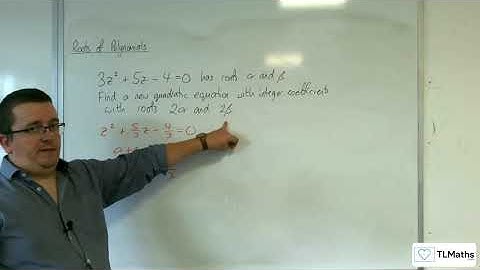 Roots of Polynomials
3z² + 5z - 4 = 0 has roots α and β
Find a new quadratic equation with integer coefficients
with roots 2α and 2β
z² + 5/3 z - 4/3 = 0
α + 
3
TLMaths